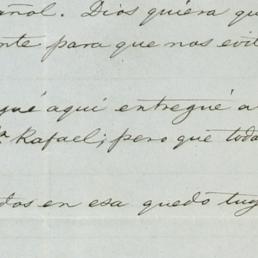 añol. Dios quiera qu
nte para que nos evit
qué aquí entregué a
ª Rafael; pero que toda
dos en esa quedó tuy